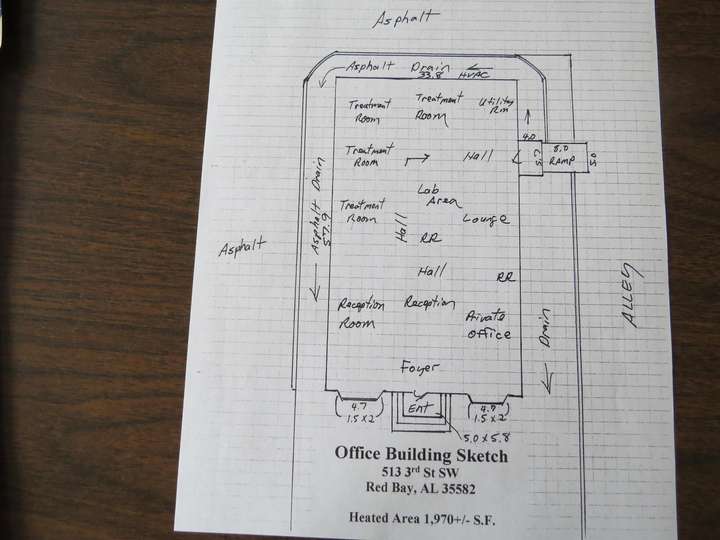 Asphalt
Asphalt Drain
33.8
HVAC
Treatment
Room
Treatment
Room
Utility
Rm
4.0
Treatment
Room
Hall
5.7
8.0
RAMP
5.0
Lab
Area
Treatment
Room
Hall
Lounge
RR
Asphalt Drain
57.9
Asphalt
Hall
RR
Reception
Room
Reception
Private
Office
Drain
ALLEY
Foyer
4.7
1.5 x 2
ENT
4.7
1.5 x 2
5.0 x 5.8
Office Building Sketch
513 3rd St SW
Red Bay, AL 35582
Heated Area 1,970+/- S.F.